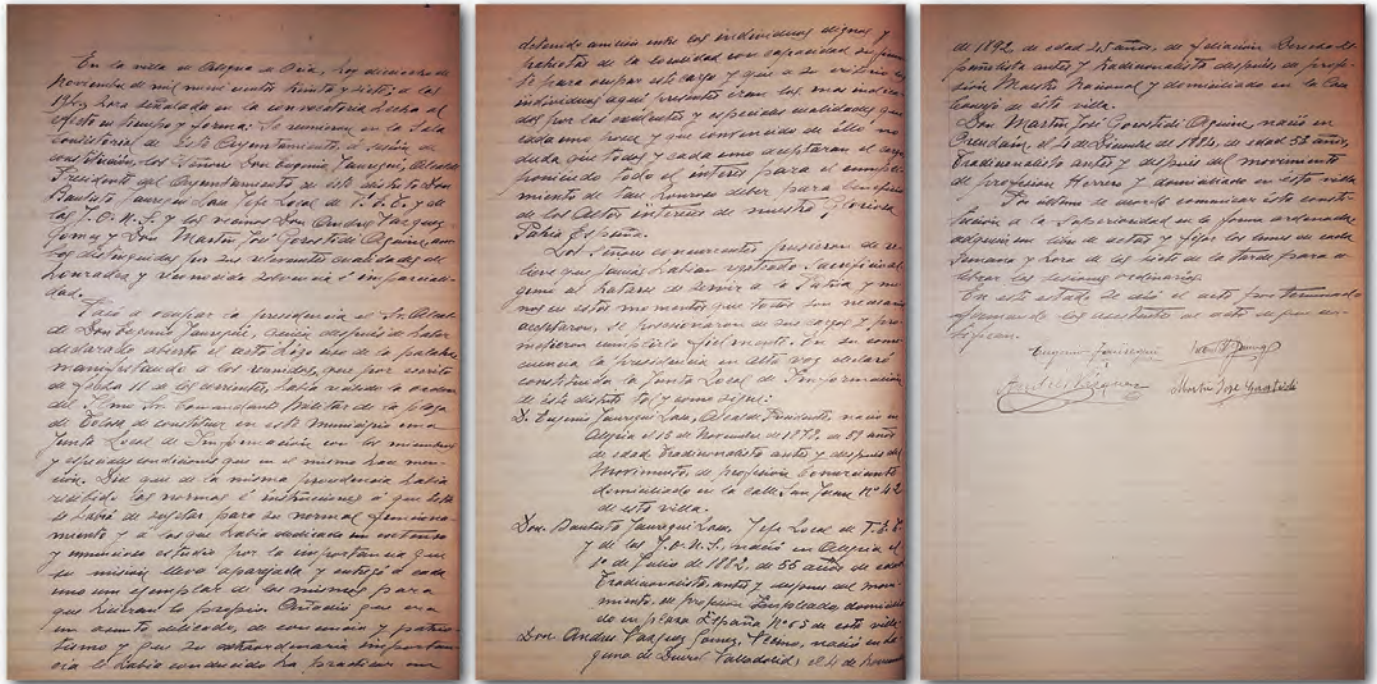 En la villa de Alegria de Oria, hoy dieciocho de
Noviembre de mil novecientos treinta y siete, a las
19h, hora señalada en la convocatoria hecha al
efecto en tiempo y forma: Se reunieron en la Sala
Consistorial de este Ayuntamiento, a sesión de
constitución, los Señores Don Eugenio Jauregui, Alcalde
Presidente del Ayuntamiento de este distrito Don
Bautista Jauregui Lasa Jefe Local de F.E.T. y de
las J.O.N.S. y los vecinos Don Andres Vazquez
Gomez y Don Martin José Gorostidi Aguirre, am-
bos distinguidos por sus relevantes cualidades de
honradez y reconocida solvencia é imparciali-
dad.
Pasó a ocupar la presidencia el Sr. Alcal-
de Don Eugenio Jauregui, quien despues de haber
declarado abierto el acto hizo uso de la palabra
manifestando a los reunidos, que por escrito
de fecha 11 de los corrientes, habia recibido la orden
del Ilmo Sr. Comandante Militar de la plaza
de Tolosa de constituir en este Municipio una
Junta Local de Información con los miembros
y especiales condiciones que en el mismo hace men-
ción. Dijo que de la misma procedencia habia
recibido las normas é instrucciones á que esta
se habia de sujetar para su normal funciona-
miento y á los que habia dedicado un extenso
y minucioso estudio por la importancia que
su misión lleva aparejada y entregó a cada
uno un ejemplar de las mismas para
que hicieran lo propio. Añadió que era
un asunto delicado, de conciencia y patrio-
tismo y que su extraordinaria importan-
cia le habia conducido ha practicar un
detenido analisis entre los individuos dignos y
patriotas de la localidad con capacidad suficien-
te para ocupar este cargo y que a su criterio los
individuos aqui presentes eran los mas indica-
dos por las excelentes y especiales cualidades que
cada uno posee y que convencido de ello no
duda que todos y cada uno aceptaran el cargo
poniendo todo el interes para el cumpli-
miento de tan honroso deber para beneficio
de los Altos intereses de nuestra Gloriosa
Patria España.
Los Señores concurrentes pusieron de re-
lieve que jamás habian regateado sacrificio al-
guno al tratarse de servir a la Patria y me-
nos en estos momentos que todos son necesarios
aceptaron, se posesionaron de sus cargos y pro-
metieron cumplirlo fielmente. En su conse-
cuencia la presidencia en alta voz declaró
constituida la Junta Local de Información
de este distrito tal y como sigue:
D. Eugenio Jauregui Lasa, Alcalde Presidente, nació en
Alegria el 15 de Noviembre de 1878, de 59 años
de edad, Tradicionalista antes y despues del
Movimiento, de profesión Comerciante
domiciliado en la calle San Juan Nº 42
de esta villa.
Don Bautista Jauregui Lasa, Jefe Local de F.E.T.
y de las J.O.N.S., nació en Alegria el
1º de Julio de 1882, de 55 años de edad
Tradicionalista, antes y despues del movi-
miento, de profesión Empleado, domicilia-
do en plaza España Nº 65 de esta villa
Don Andres Vazquez Gómez, Vecino, nació en La-
guna de Duero (Valladolid) el 4 de Noviembre
de 1892, de edad 45 años, de filiación Derecha Es-
pañolista antes y tradicionalista después, de profe-
sión Maestro Nacional y domiciliado en la Casa
Consejo de esta villa.
Don Martin José Gorostidi Aguirre, nació en
Orendain, el 4 de Diciembre de 1884, de edad 53 años,
Tradicionalista antes y despues del movimiento
de profesion Herrero y domiciliado en esta villa
Por último se acordó comunicar esta consti-
tución a la Superioridad en la forma ordenada
adquirir un libro de actas y fijar los lunes de cada
semana y hora de las siete de la tarde para ce-
lebrar las sesiones ordinarias.
En este estado se dió el acto por terminado
firmando los asistentes al acto de que cer-
tifican.
Eugenio Jauregui
Andrés Vázquez Martin José Gorostidi